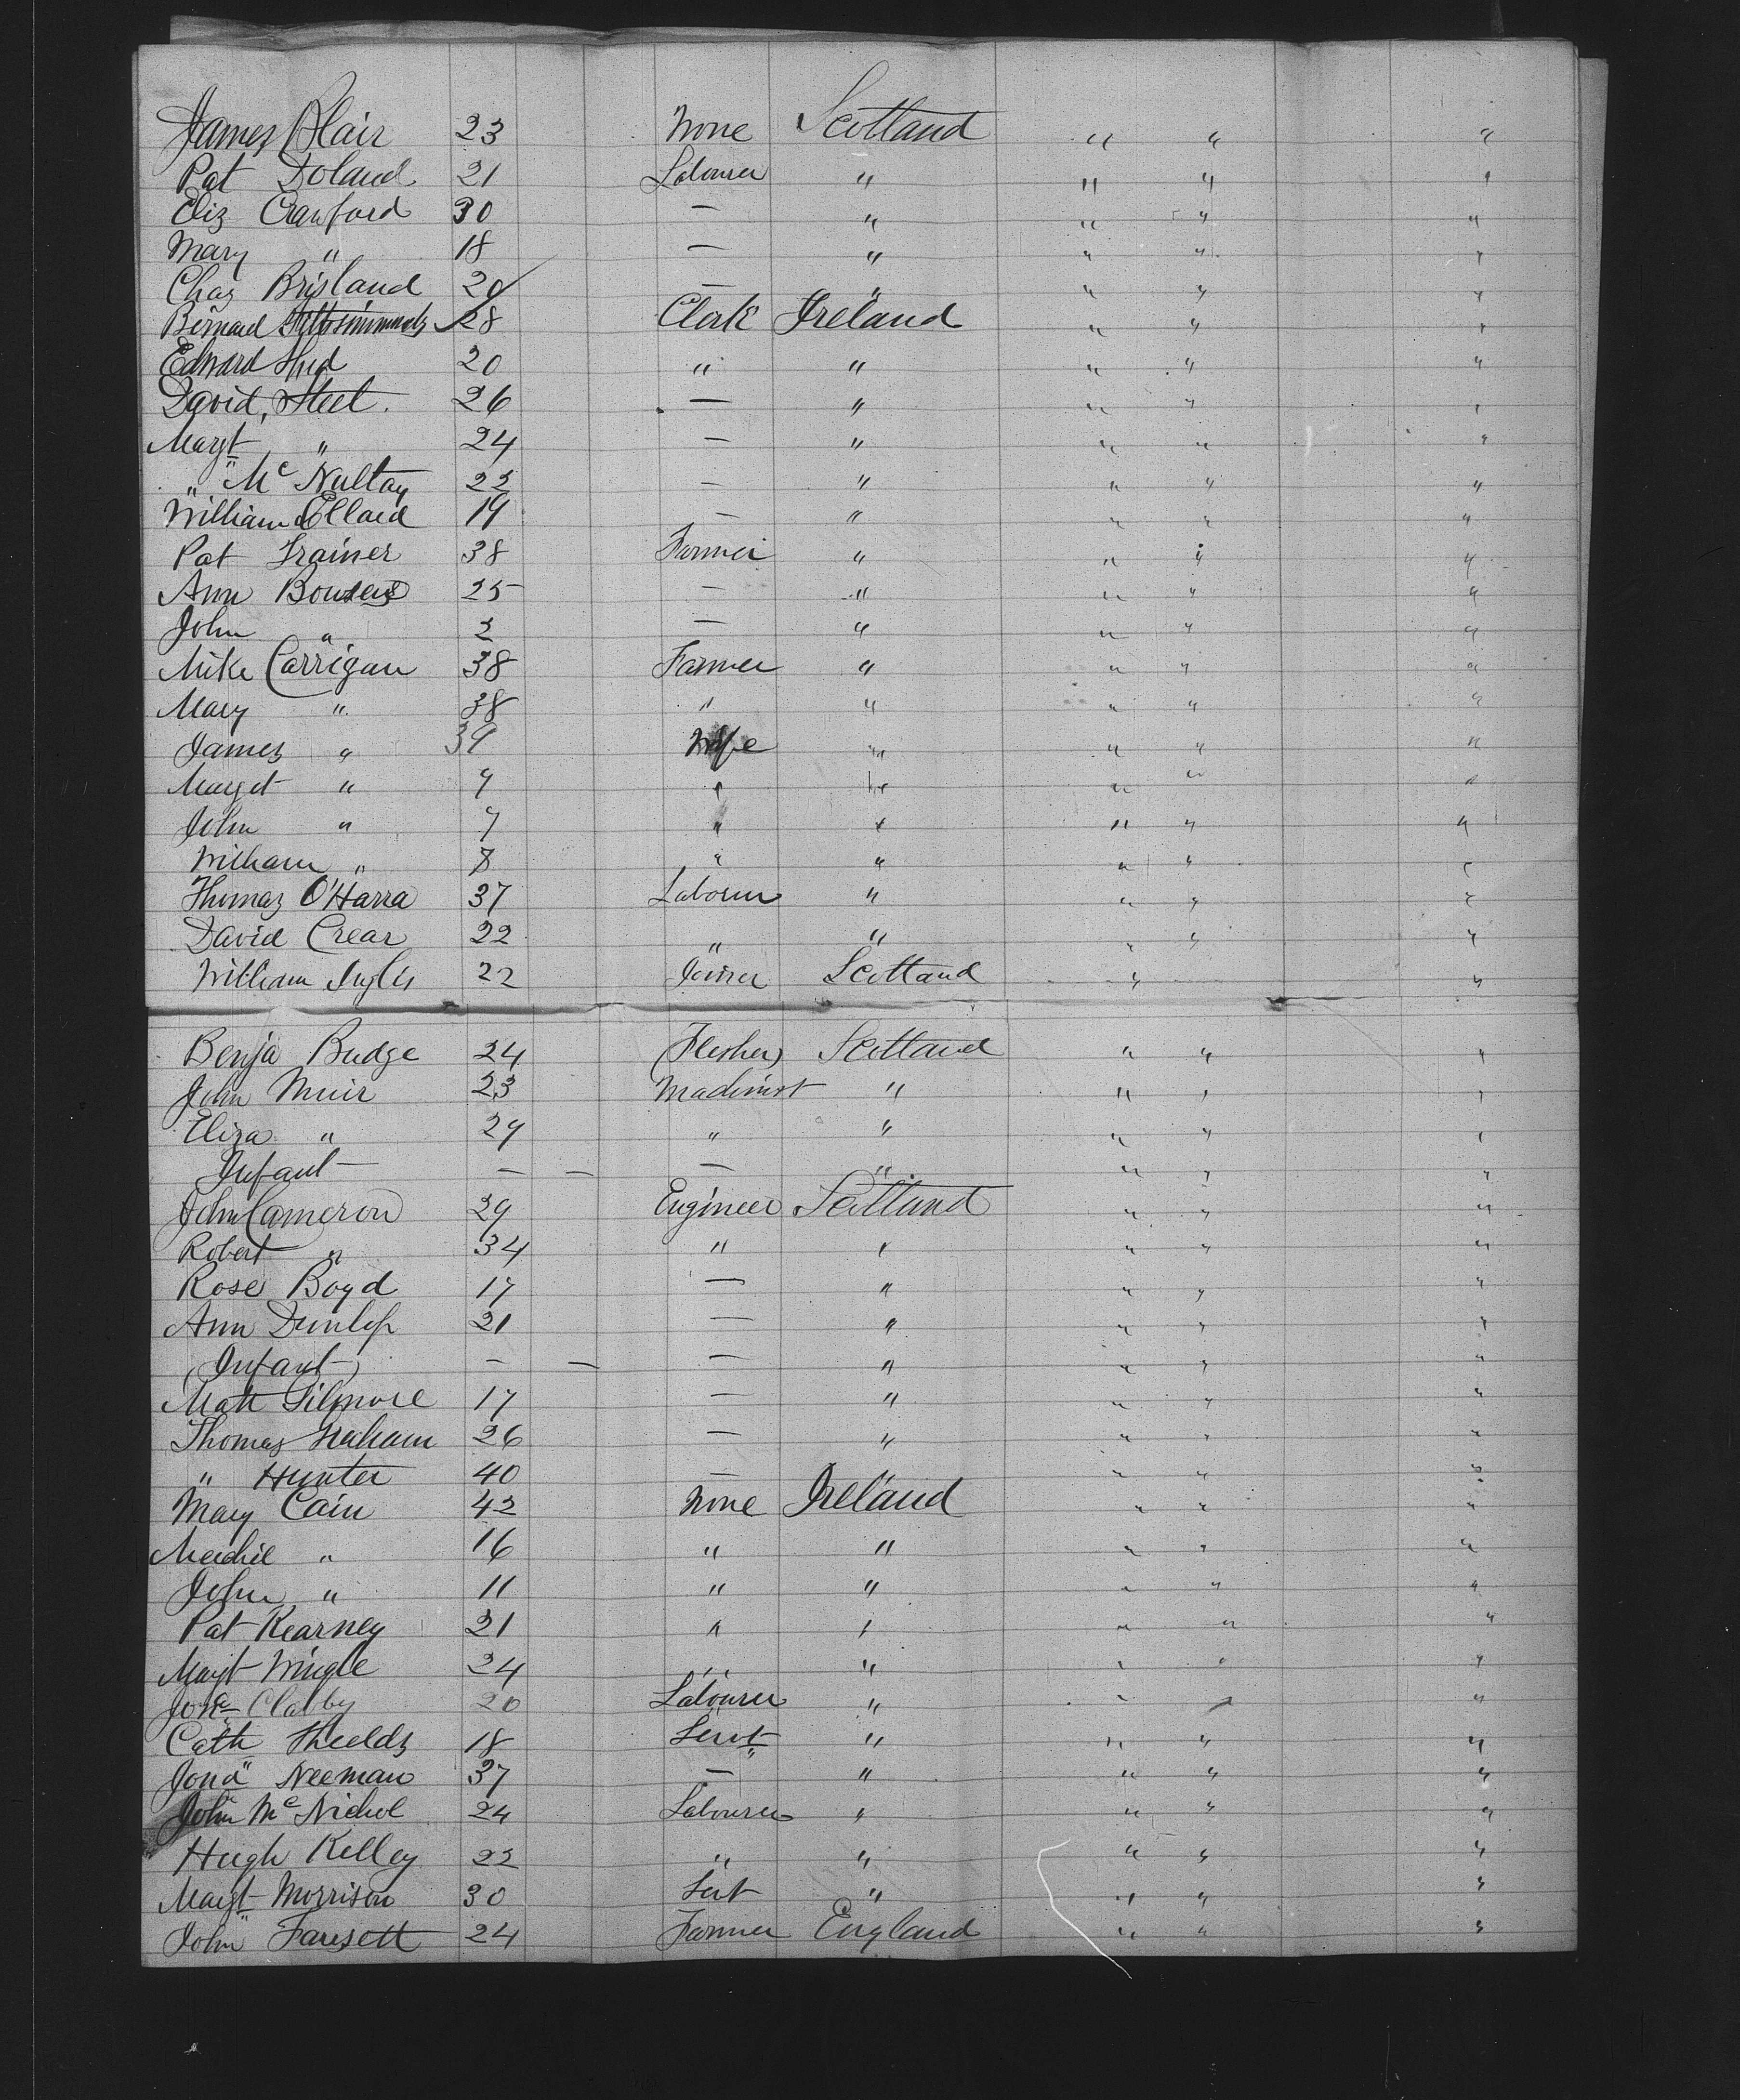 James Blair 23 None Scotland " " "
Pat Doland 21 Labourer " " " "
Eliz Crawford 30 — " " " "
Mary " 18 — " " " "
Chas Brisland 20 — " " " "
Bernard 28 Clerk Ireland " " "
Edward 20 " " " " "
David Steel. 26 — " " " "
Margt " 24 — " " " "
" McNultay 22 — " " " "
William Ellard 19 — " " " "
Pat Trainer 38 Farmer " " " "
Ann 25 — " " " "
John " 2 — " " " "
Mike Carrigan 38 Farmer " " " "
Mary " 38 " " " " "
James " 39 " " " "
Margt " 9 " " " " "
John " 7 " " " " "
William " 8 " " " " "
Thomas O'Harra 37 Laborer " " " "
David Crear 22 " " " " "
William 22 Joiner Scotland " "
Benja Budge 24 Flesher Scotland " " "
John Muir 23 Machinist " " " "
Eliza " 29 " " " " "
Infant — — — " " " "
John Cameron 29 Engineer Scotland " " "
Robert " 34 " " " " "
Rose Boyd 17 — " " " "
Ann Dunlop 21 — " " " "
(Infant) — — — " " " "
Matt Gilmore 17 — " " " "
Thomas Graham 26 — " " " "
" Hunter 40 — " " " "
Mary Cain 42 None Ireland " " "
" 16 " " " " "
John " 11 " " " " "
Pat Kearney 21 " " " " "
Margt 24 " " " " "
Jona Clabby 20 Labourer " " " "
Cath Shields 18 Servt " " " "
Jona Neeman 37 — " " " "
John McNichol 24 Labourer " " " "
Hugh Kelley 22 " " " " "
Margt Morrison 30 " " " "
John Fausett 24 Farmer England " " "